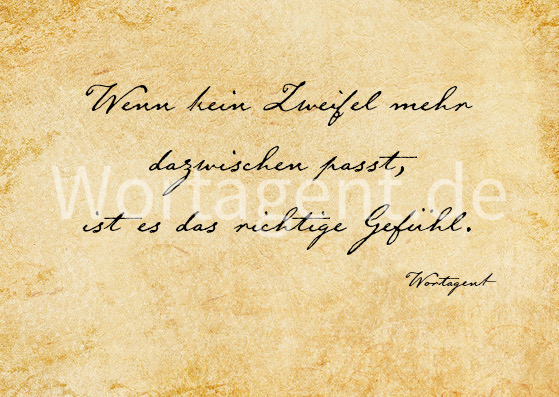 Wenn kein Zweifel mehr
dazwischen passt,
Wortagent.de
ist es das richtige Gefühl.
Wortagent